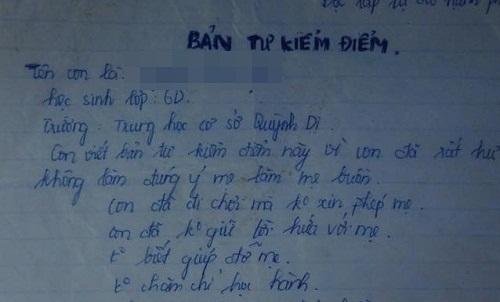 Độc lập tự do hạnh ph
BẢN TỰ KIỂM ĐIỂM.
Tên con là:
học sinh lớp: 6D.
Trường: Trung học cơ sở Quỳnh Dị.
Con viết bản tự kiểm điểm này vì con đã rất hư
không làm đúng ý mẹ làm mẹ buồn.
Con đã đi chơi mà ko xin phép mẹ.
con đã ko giữ lời hứa với mẹ.
ko biết giúp đỡ mẹ.
ko chăm chỉ học hành.